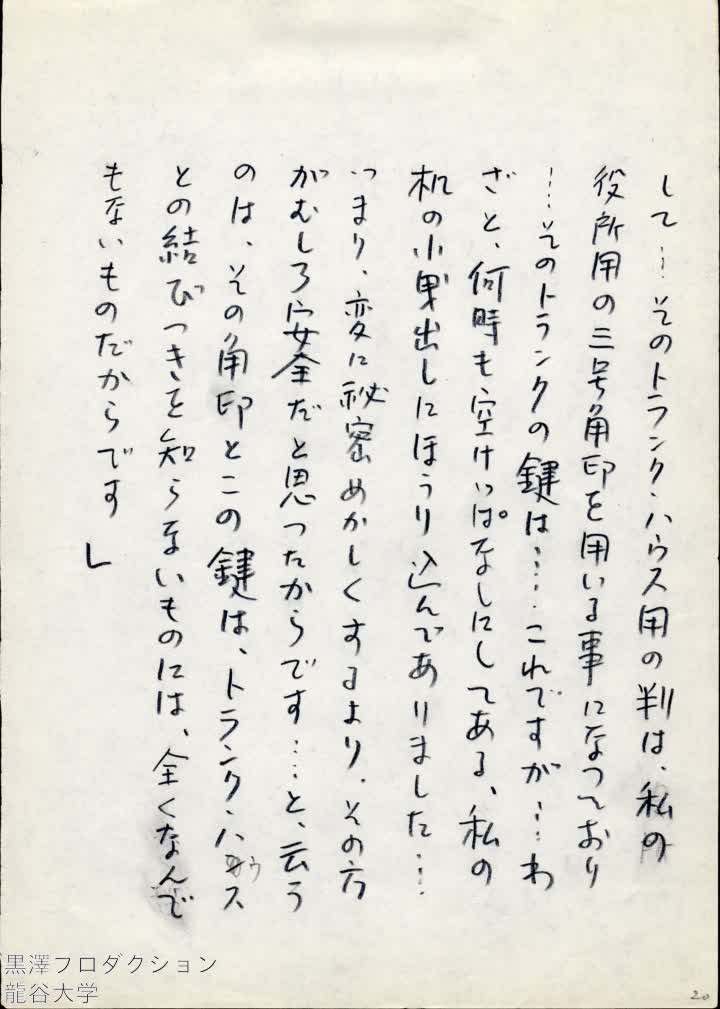 して…そのトランク・ハウス用の判は、私の
役所用の三号角印を用いる事になつており
…そのトランクの鍵は……これですが…わ
ざと、何時も空けっぱなしにしてある、私の
机の小曳出しにほうり込んでありました…
つまり、変に秘密めかしくするより、その方
がむしろ安全だと思つたからです……と、云う
のは、その角印とこの鍵は、トランク・ハウス
との結びつきを知らないものには、全くなんで
もないものだからです」
黒澤プロダクション
龍谷大学
20